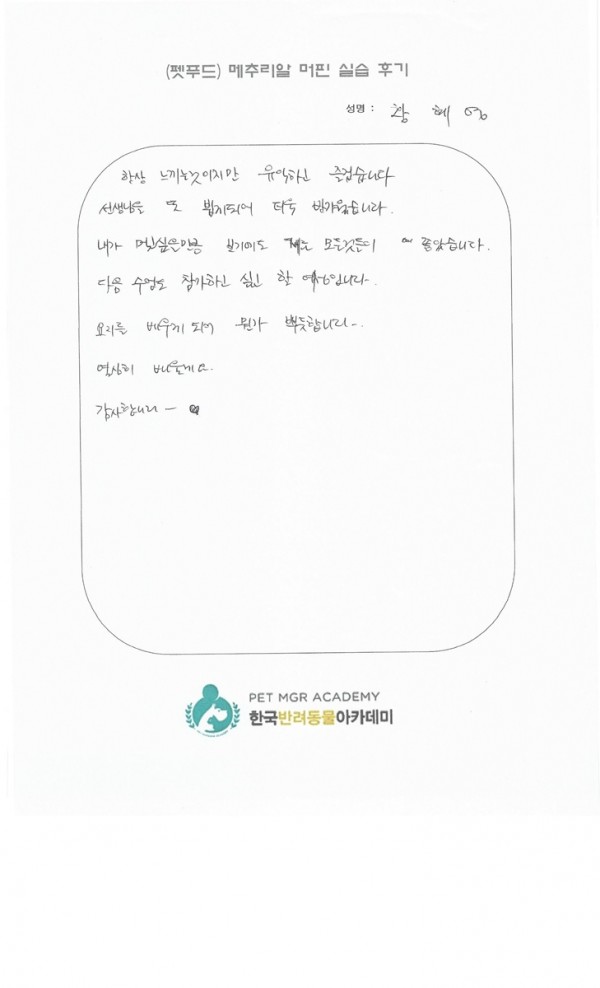 (펫푸드) 메추리알 머핀 실습 후기
성명 :
항상 느끼는것이지만 유익하고 즐겁습니다
선생님을 또 뵙게되어 더욱 반가웠습니다.
내가 모든것들이 좋았습니다.
다음 수업도 참가하고 싶고 할 예정입니다.
요리를 배우게 되어 뭔가 뿌듯합니다~.
열심히 배울게요.
감사합니다 ~
PET MGR ACADEMY
한국반려동물아카데미